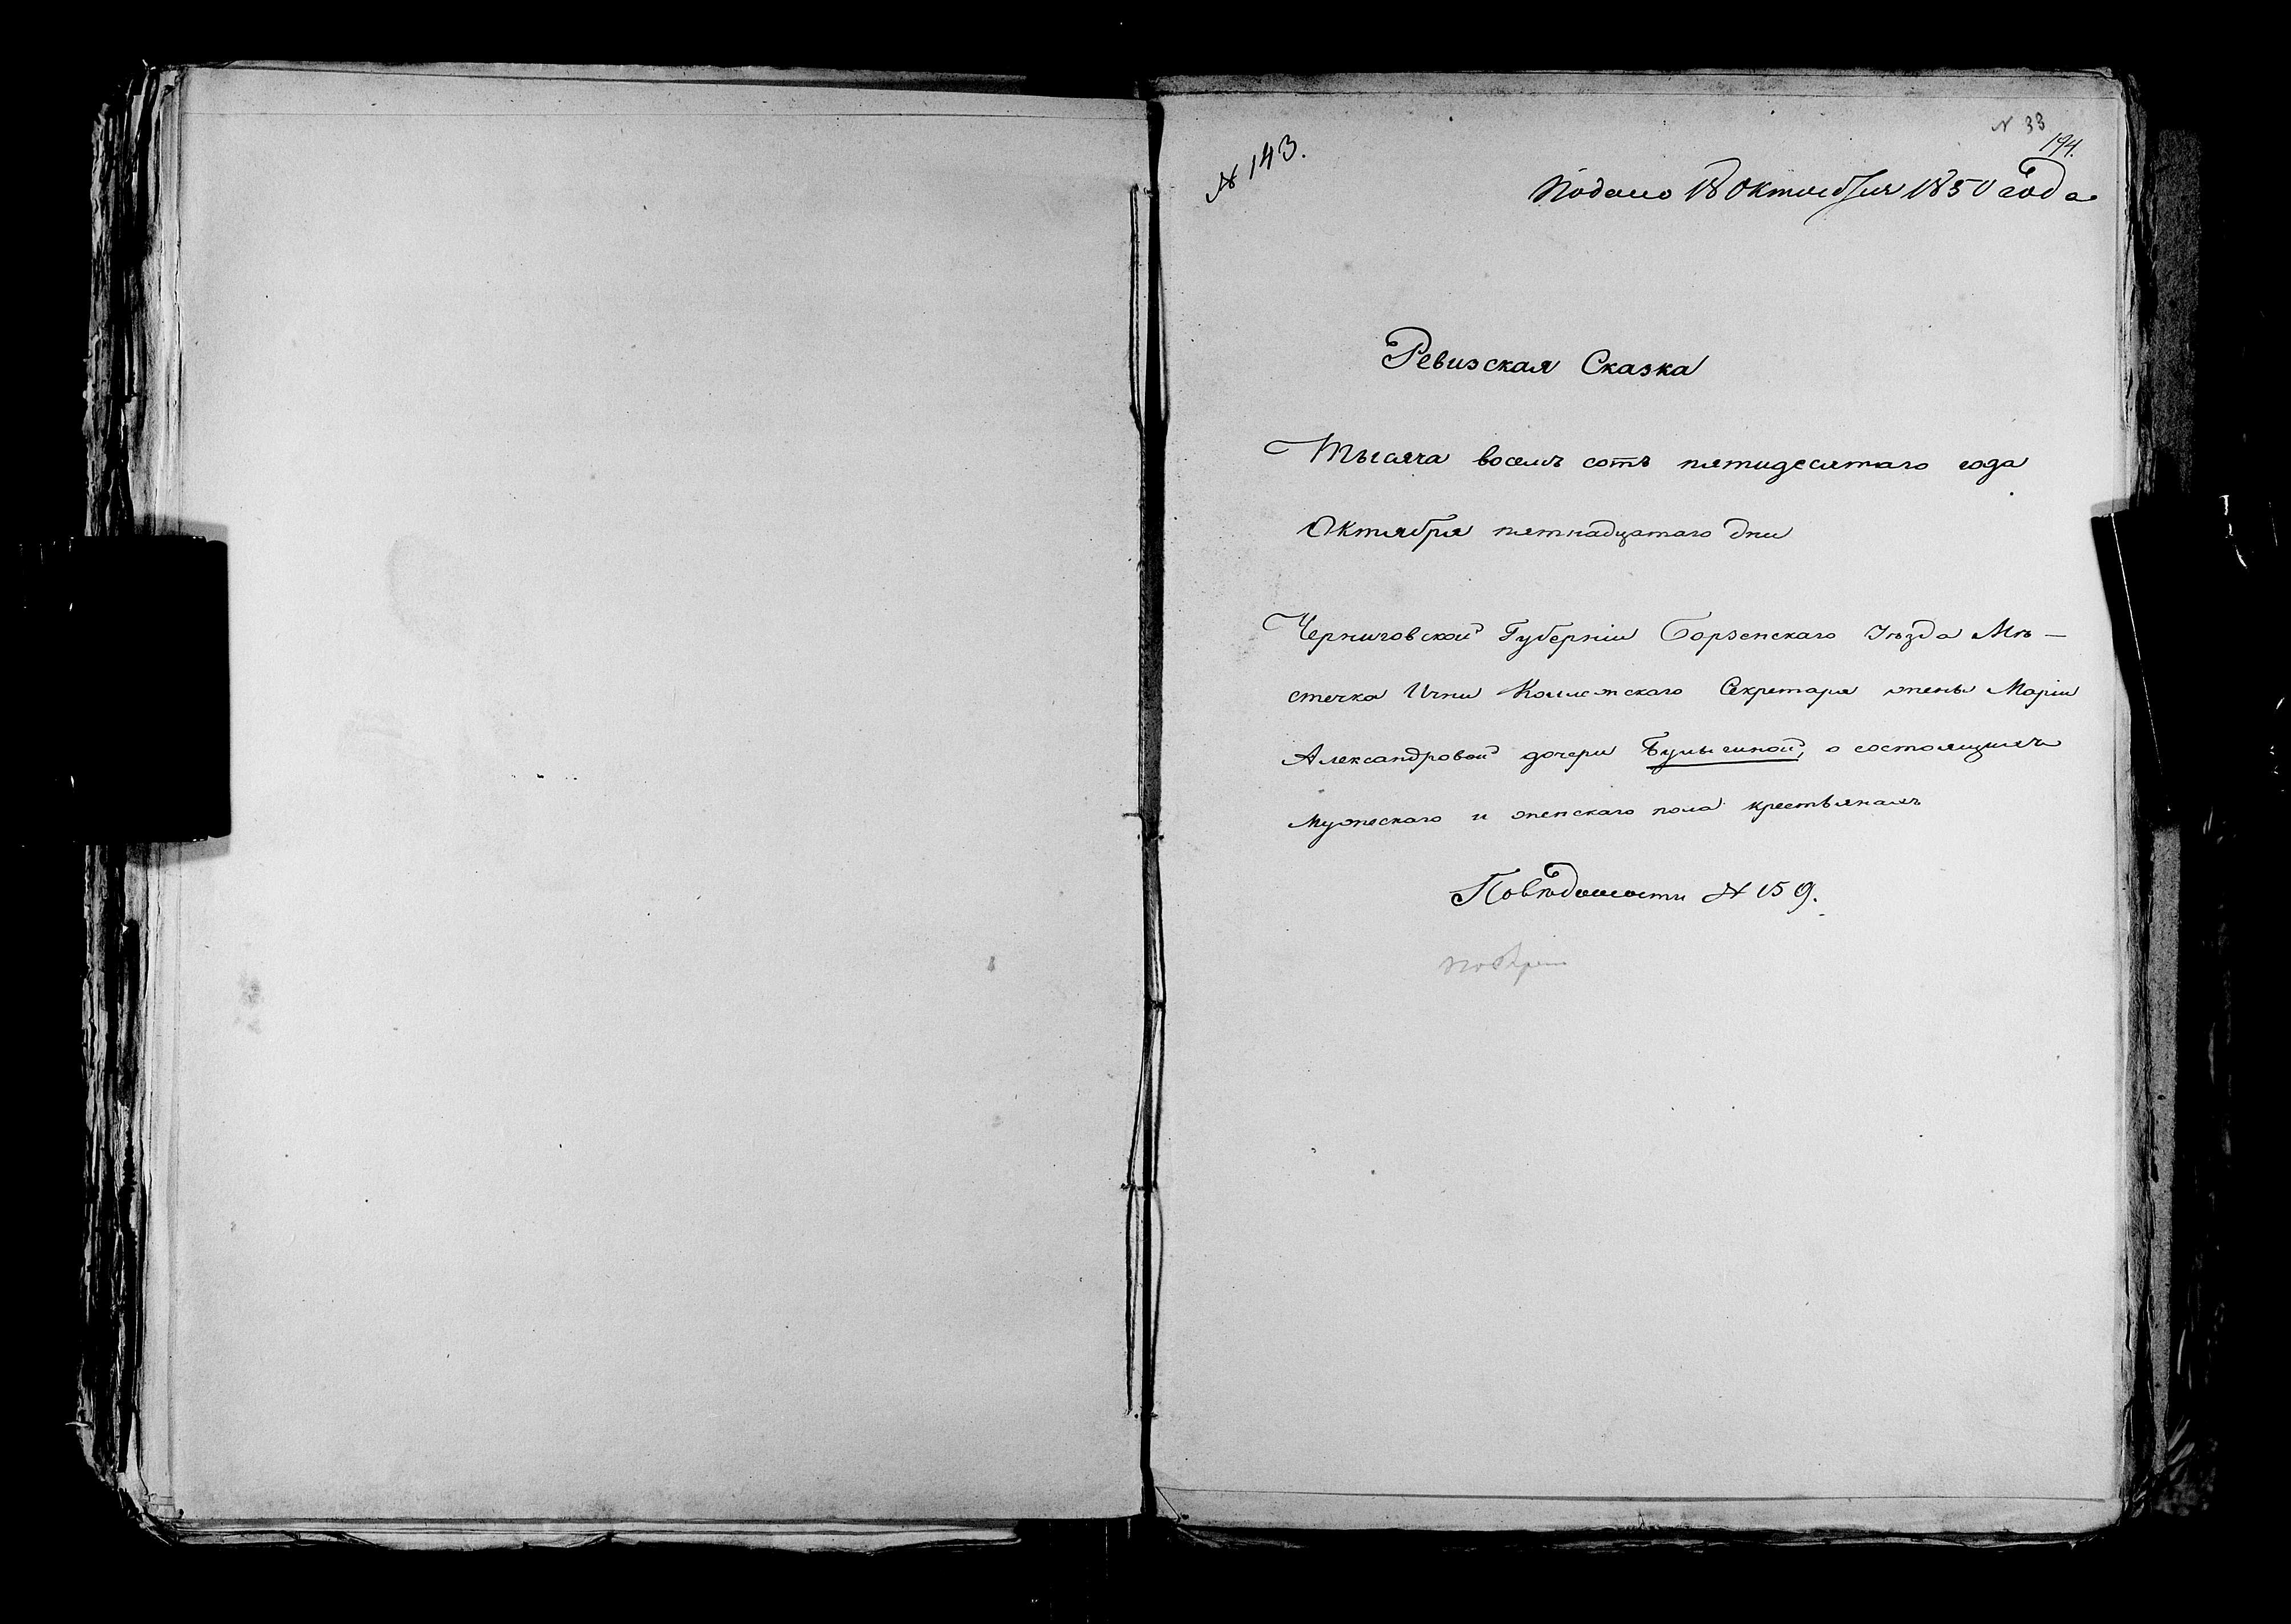 N 33
194.
№ 143.
Подано 18 Октября 1850 года
Ревизская Сказка
Тысяча восемь сотъ пятидесятаго года
Октября пятнадцатаго дни
Черниговской Губерніи Борзенскаго Уѣзда Мѣ-
стечка Ични Коллежскаго Секретаря жены Маріи
Александровой дочери Булыгиной, о состоящихъ
мужескаго и женскаго пола крестьянахъ
По вѣдомости № 159.